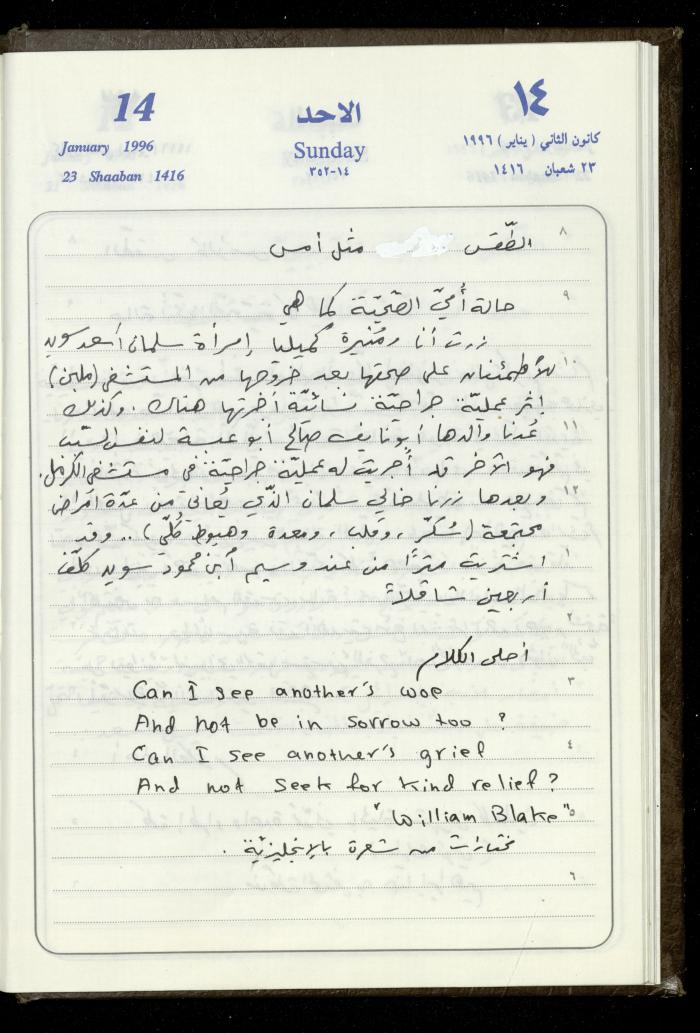 14
January 1996
23 Shaaban 1416
الاحد
Sunday
١٤-٣٥٢
١٤
كانون الثاني ( يناير ) ١٩٩٦
٢٣ شعبان ١٤١٦
٨
الطّقس مثل أمس
٩
حالة أُميّ الصّحيّة كما هي
زرت أنا ومُنيرة كميليا إمرأة سلمان أسعد سويد
١٠
للأطمئنان على صحتها بعد خروجها من المستشفى (ملبن)
إثر عمليّة جراحيّة نسائيّة أجرتها هناك. وكذلك
١١
عُدنا والدها أبو نايف صالح أبو عبسة لنفس السّبب
فهو الآخر قد أُجريت له عمليّة جراحيّة في مستشفى الكرمل.
١٢
وبعدها زرنا خالي سلمان الذّي يُعاني من عدّة امراض
مجتمعة (سُكّر، وقلب، ومعدة وهبوط كُلّي) .. وقد
١
اشتريت مترًا من عند وسيم أبن محمود سويد كلّف
أربعين شاقلاً
٢
أحلى الكلام
٣
Can I see another's woe
And not be in sorrow too ?
٤
Can I see another's grief
And not seek for kind relief?
٥
"William Blake"
مختارات من شعرة بالإنجليزيّة .
٦